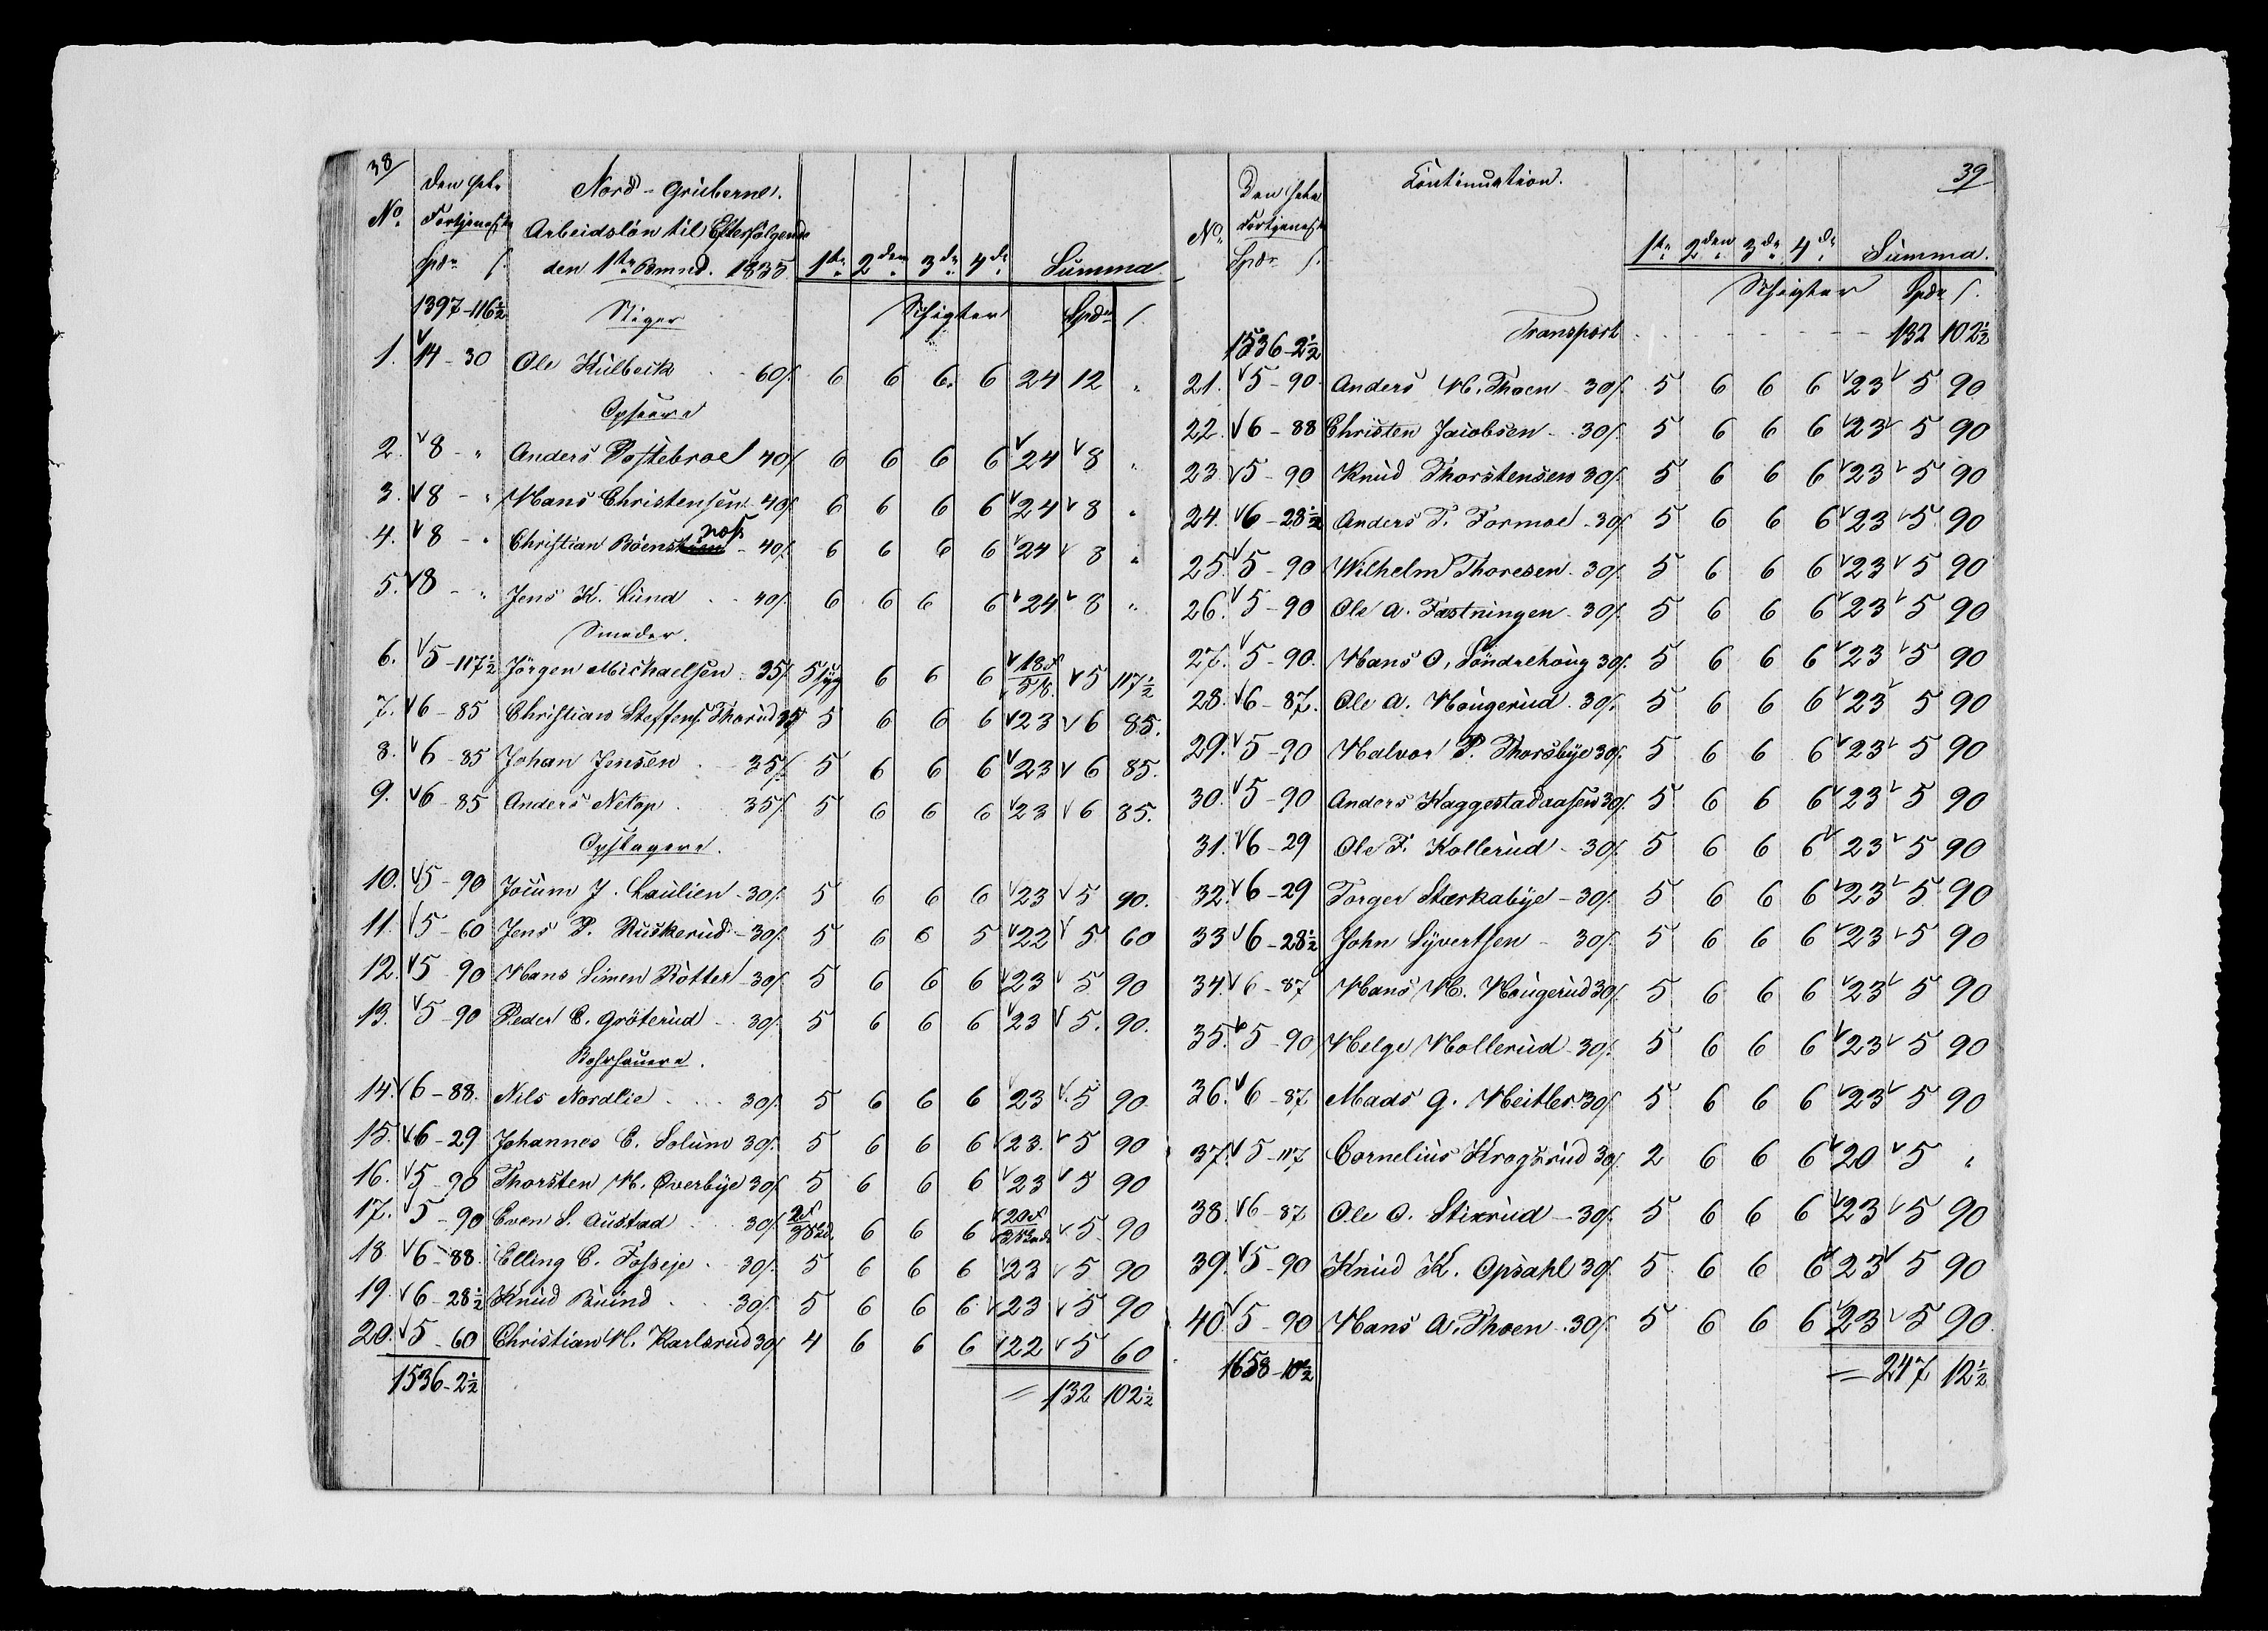 38/
Den hele Nord-Gruberne.
No. Fortjeneste Arbeidslön til Efterfölgende
Spdr s. den 1ste Bmnd. 1835 1ste 2den 3de 4de Summa
1397-116½ Stiger Schigter Spdr s.
1. 14-30 Ole Külbeck 60s. 6 6 6 6 24 12 "
2. 8-" Anders Postebroe 40s. 6 6 6 6 24 8 "
3. 8-" Hans Christensen 40s. 6 6 6 6 24 8 "
4. 8-" Christian Böens 40s. 6 6 6 6 24 8 "
5. 8-" Jens K. Lund 40s. 6 6 6 6 24 8 "
Smeder.
6. 5-117½ Jörgen Michaelsen 35s. 5 syg 6 6 6 18 5 5 117½
7. 6-85 Christian Steffens. Thorud 35 5 6 6 6 23 6 85.
8. 6-85 Johan Jensen 35s. 5 6 6 6 23 6 85.
9. 6-85 Anders Netop 35s. 5 6 6 6 23 6 85.
Opstagere.
10. 5-90 Jocum J. Laulien 30s. 5 6 6 6 23 5 90.
11. 5-60 Jens P. Ruskerud 30s. 5 6 6 5 22 5 60
12. 5-90 Hans Simen Rotter 30s. 5 6 6 6 23 5 90
13. 5-90 Peder C. Gröterud 30s. 5 6 6 6 23 5 90.
Bohrhauere.
14. 6-88. Nils Nordlie 30s. 5 6 6 6 23 5 90
15. 6-29 Johannes E. Solum 30s. 5 6 6 6 23. 5 90
16. 5-90 Thorsten H. Overbye 30s. 5 6 6 6 23 5 90
17. 5-90 Even S. Austad 30s. 2 3 6 6 6 20 3 5 90
18 6-88. Elling E. Fosseje 30s. 5 6 6 6 23 5 90
19. 6-28½ Knud Buind 30s. 5 6 6 6 23 5 90
20. 5-60 Christian H. Karlsrud 30s. 4 6 6 6 22 5 60
1536-2½ = 132 102½
39
Den hele Continuation.
No. Fortjeneste
Spdr s. 1ste 2den 3de 4de Summa.
Schigter Spdr s.
1536-2½ Transport 132 102½
21. 5-90 Anders H. Thoen 30s. 5 6 6 6 23 5 90
22. 6-88 Christen Jacobsen 30s. 5 6 6 6 23 5 90
23. 5-90 Knud Thorstensen 30s. 5 6 6 6 23 5 90
24. 6-28½ Anders T. Formoe 30s. 5 6 6 6 23 5 90
25. 5-90 Wilhelm Thoresen 30s. 5 6 6 6 23 5 90
26. 5-90 Ole A. Fæstningen 30s. 5 6 6 6 23 5 90
27. 5-90. Hans O. Söndrehoug 30s. 5 6 6 6 23 5 90
28. 6-87. Ole A. Hougerud 30s. 5 6 6 6 23 5 90
29. 5-90 Halvor P. Thorsbye 30s. 5 6 6 6 23 5 90
30. 5-90 Anders Haggestadaasen 30s. 5 6 6 6 23 5 90
31. 6-29 Ole F. Kollerud 30s. 5 6 6 6 23 5 90
32. 6-29 Torger Stærkabye 30s. 5 6 6 6 23 5 90
33 6-28½ John Syvertsen 30s. 5 6 6 6 23 5 90
34. 6-87 Hans H. Hougerud 30s. 5 6 6 6 23 5 90
35. 5-90 Helge Hollerud 30s. 5 6 6 6 23 5 90
36. 6-87. Mads G. Heitler 30s. 5 6 6 6 23 5 90
37. 5-117 Cornelius Kragsrud 30s. 2 6 6 6 20 5 "
38. 6-87 Ole O. Stixrud 30s. 5 6 6 6 23 5 90
39. 5-90 Knud K. Opsahl 30s. 5 6 6 6 23 5 90
40 5-90 Hans A. Thoen 30s. 5 6 6 6 23 5 90.
1658-10½ = 247 12½